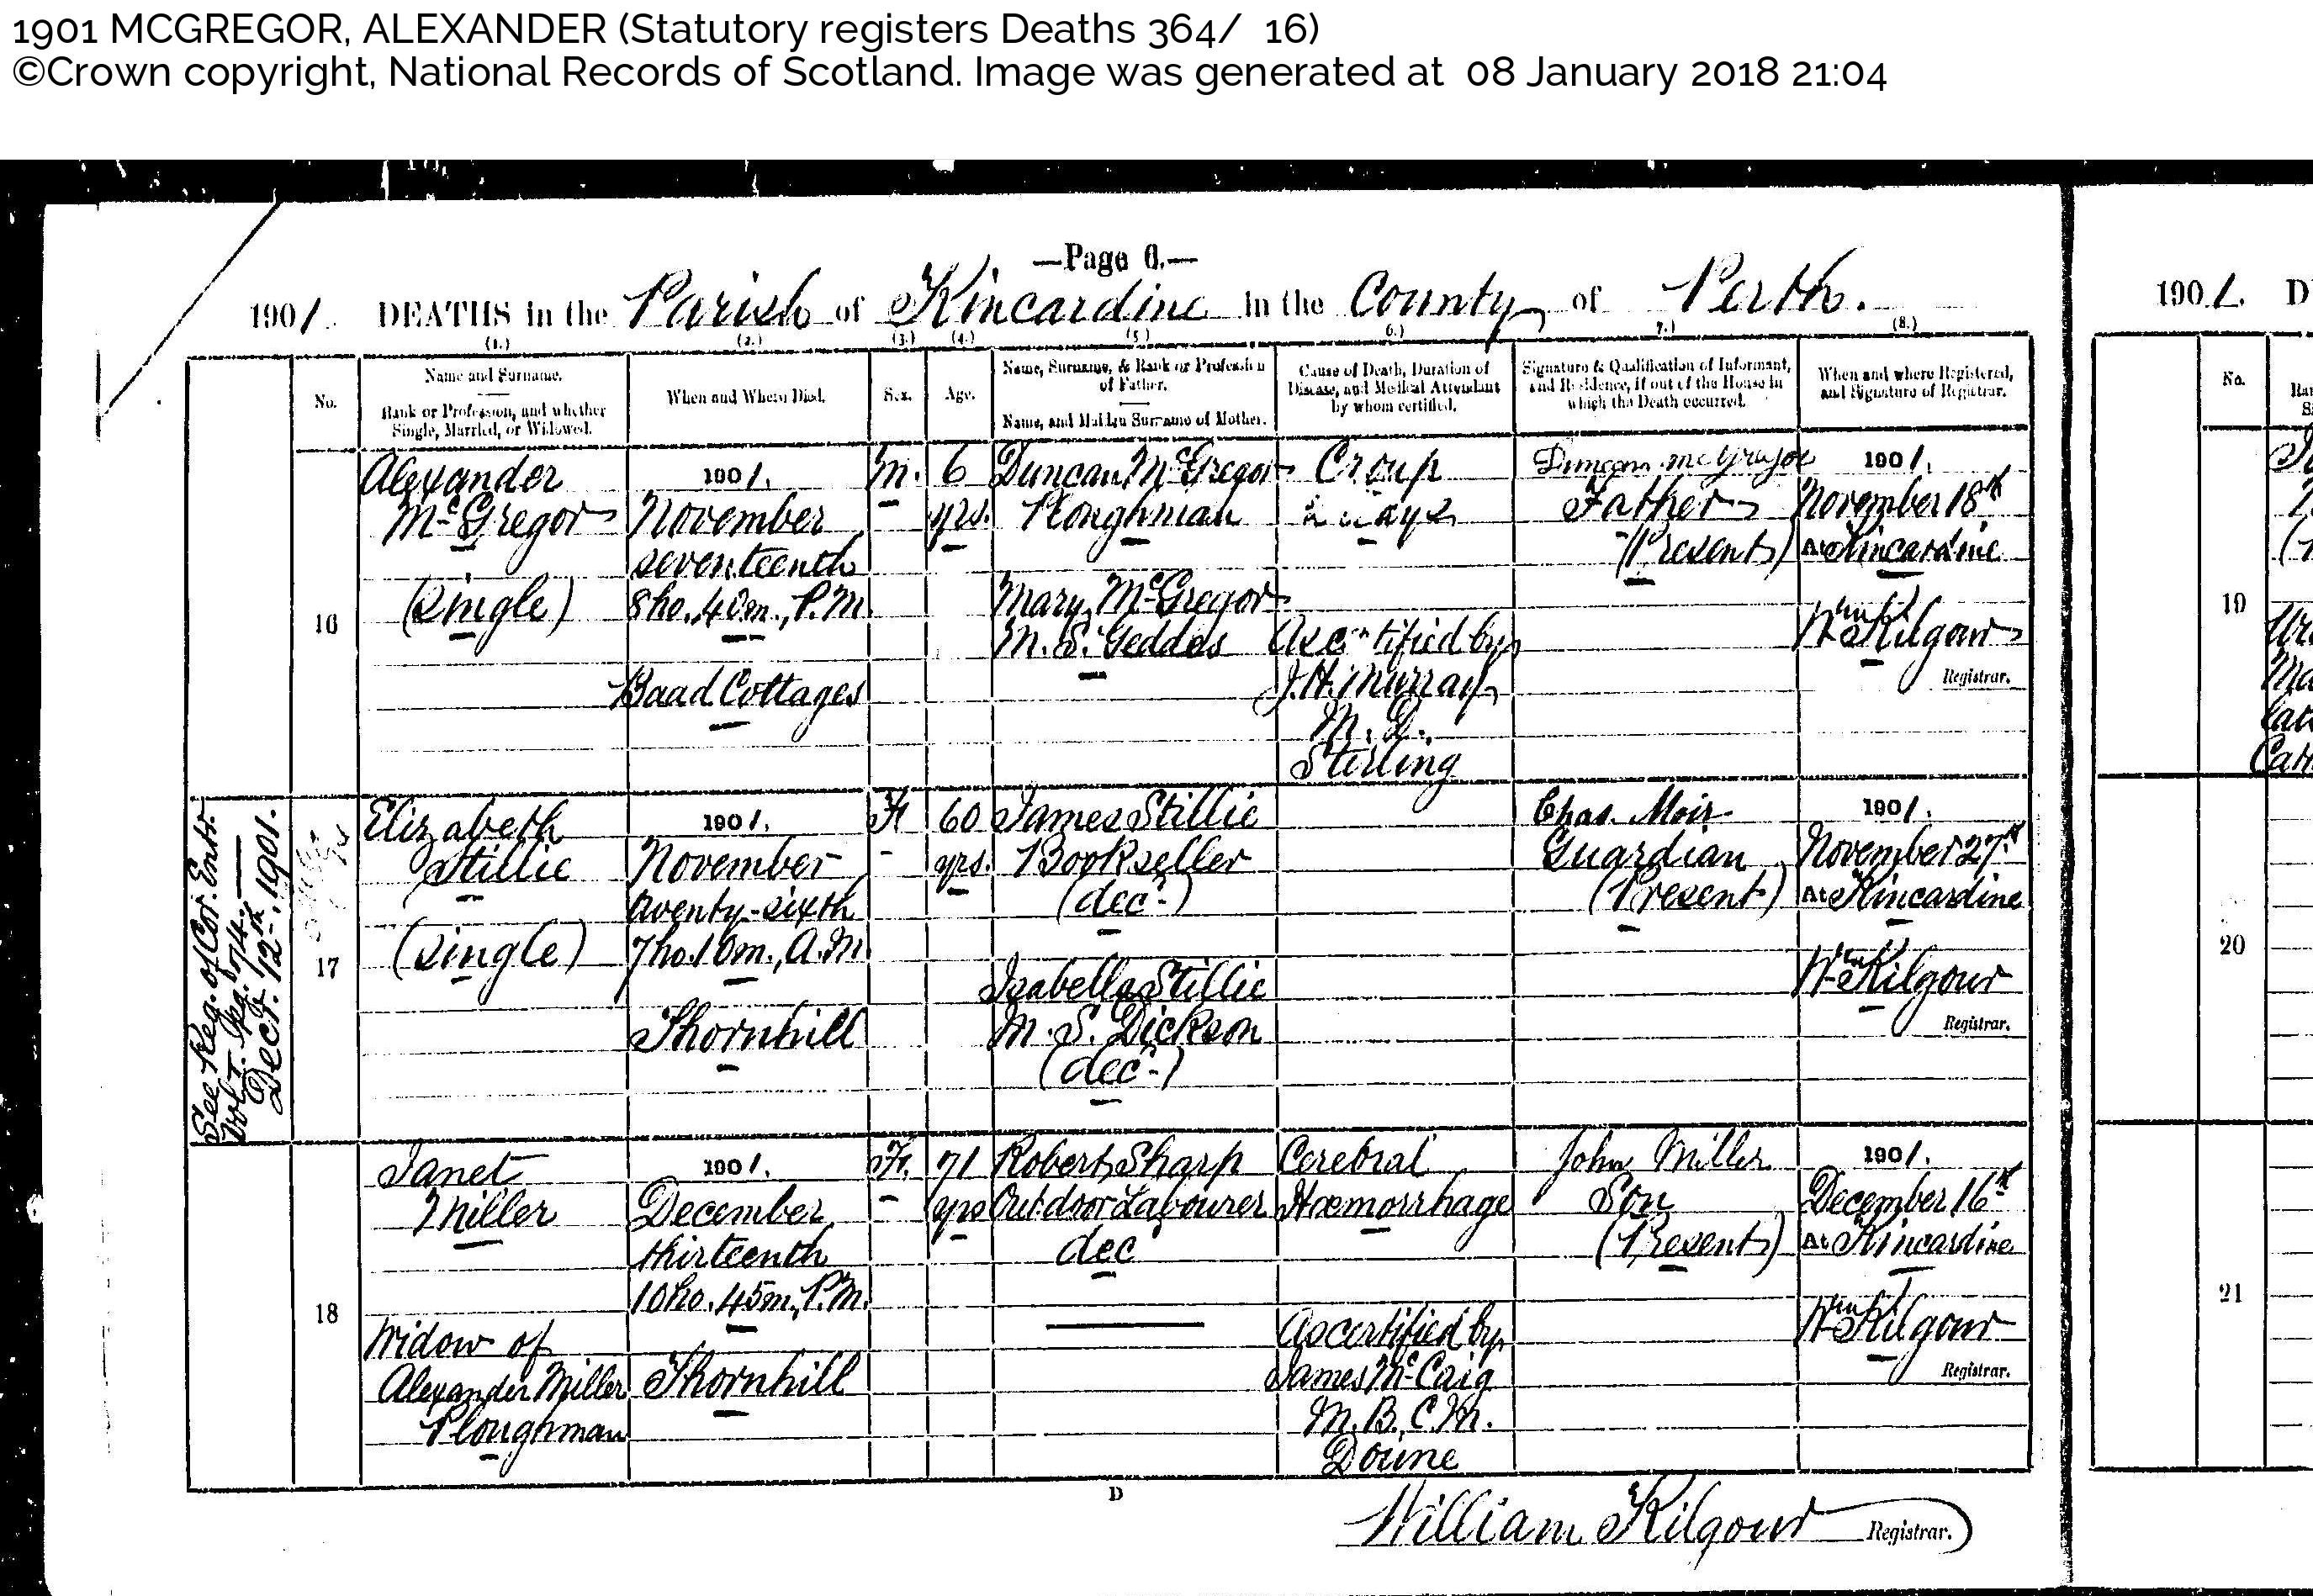 1901 MCGREGOR, ALEXANDER (Statutory registers Deaths 364/ 16)
©Crown copyright, National Records of Scotland. Image was generated at 08 January 2018 21:04
—Page 6.—
1901. DEATHS in the Parish of Kincardine in the County of Perth.
(1.) (2.) (3.) (4.) (5.) (6.) (7.) (8.)
No.
Name and Surname.
Rank or Profession, and whether
Single, Married, or Widowed.
When and Where Died.
Sex.
Age.
Name, Surname, & Rank or Profession
of Father.
Name, and Maiden Surname of Mother.
Cause of Death, Duration of
Disease, and Medical Attendant
by whom certified.
Signature & Qualification of Informant,
and Residence, if out of the House in
which the Death occurred.
When and where Registered,
and Signature of Registrar.
16
Alexander
McGregor
(Single)
1901.
November
seventeenth
8ho. 40m., P.M.
Baad Cottages
M.
6
yrs.
Duncan McGregor
Ploughman
Mary McGregor
M.S. Geddes
Croup
days
As certified by
J.H. Murray
M.D.
Stirling
Duncan McGregor
Father
(Present)
1901.
November 18th
At Kincardine
Wm Kilgour
Registrar.
See Reg. of Cor. Entr.
Vol. I. Pag. 74.
Dec. 12th 1901.
17
Elizabeth
Stillie
(Single)
1901.
November
twenty-sixth
7ho. 10m., A.M.
Thornhill
F.
60
yrs.
James Stillie
Bookseller
(decd.)
Isabella Stillie
M.S. Dickson
(decd.)
Chas. Moir
Guardian
(Present)
1901.
November 27th
At Kincardine
Wm Kilgour
Registrar.
18
Janet
Miller
Widow of
Alexander Miller
Ploughman
1901.
December
thirteenth
10ho. 45m., P.M.
Thornhill
F.
71
yrs
Robert Sharp
Outdoor Labourer
decd
Cerebral
Hæmorrhage
As certified by
James McCaig
M.B. C.M.
Doune
John Miller
Son
(Present)
1901.
December 16th
At Kincardine
Wm Kilgour
Registrar.
D
William Kilgour Registrar.
1901. D
No.
19
20
21